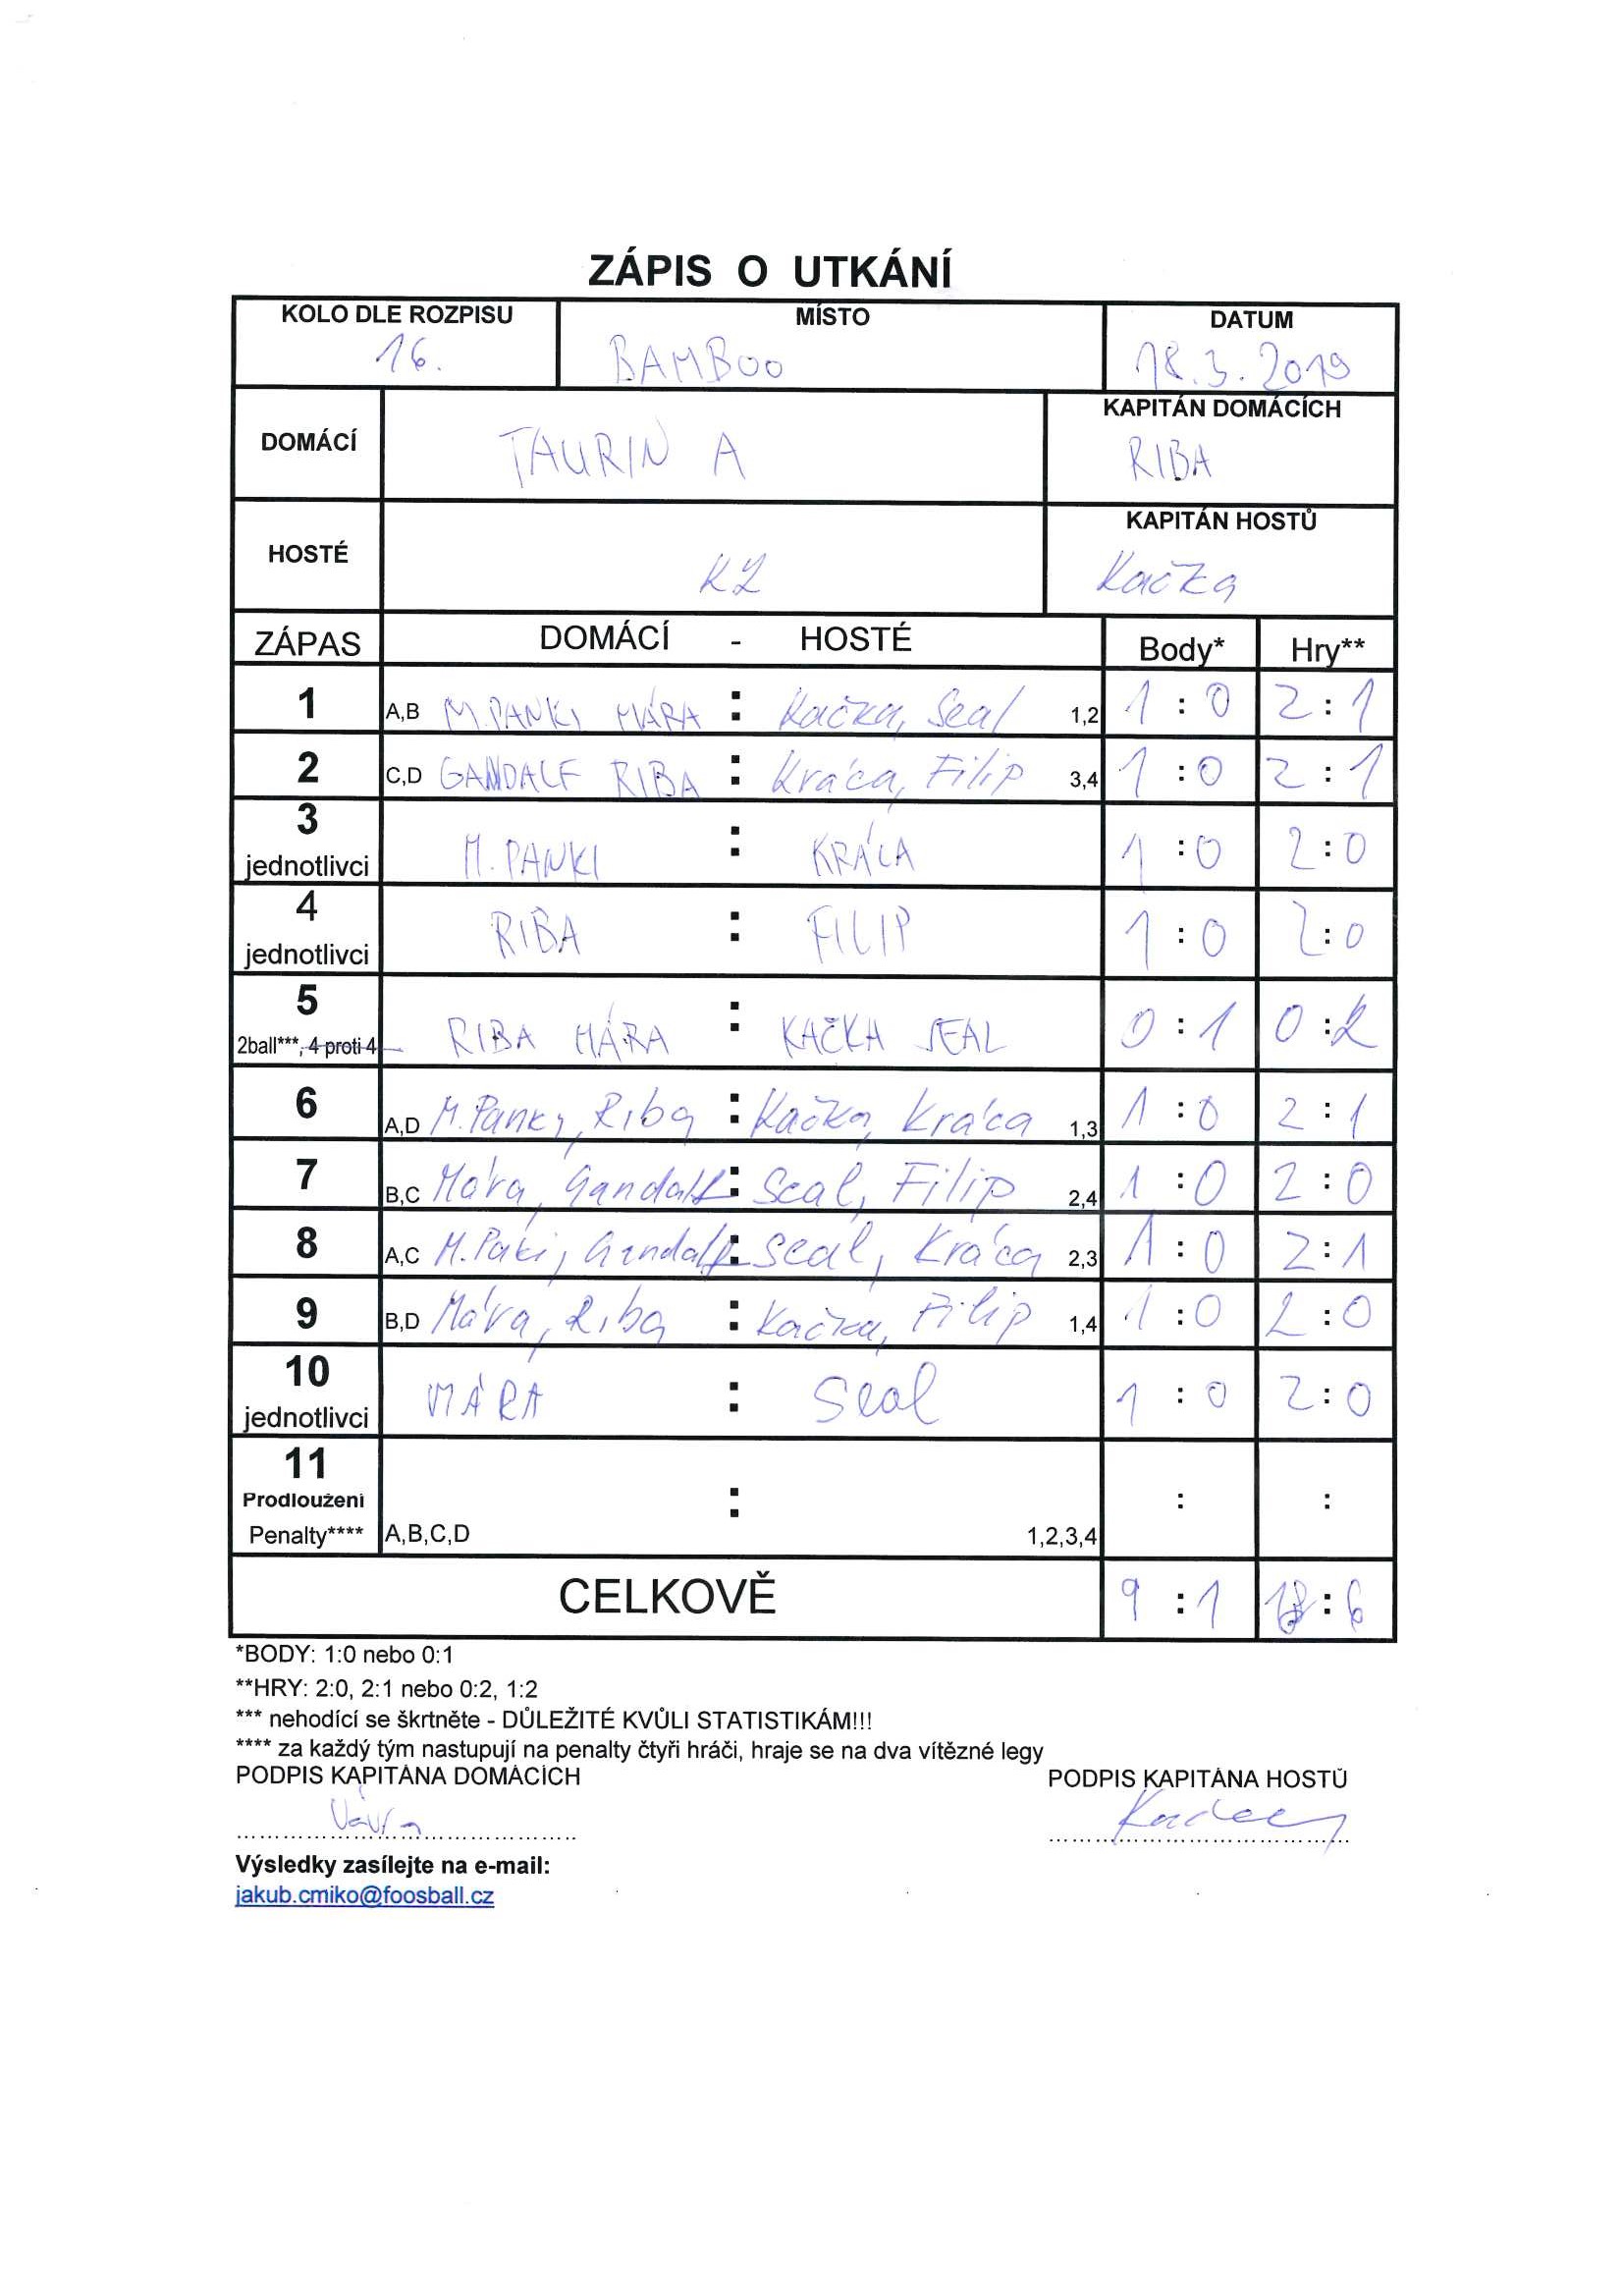 ZÁPIS O UTKÁNÍ
KOLO DLE ROZPISU MÍSTO DATUM
16. BAMBOO 18.3.2019
DOMÁCÍ TAURIN A KAPITÁN DOMÁCÍCH
RIBA
HOSTÉ KZ KAPITÁN HOSTŮ
Kačka
ZÁPAS DOMÁCÍ - HOSTÉ Body* Hry**
1 A,B M.PANKI MÁRA : Kačka, Seal 1,2 1 : 0 2 : 1
2 C,D GANDALF RIBA : Kráca, Filip 3,4 1 : 0 2 : 1
3
jednotlivci M. PANKI : KRÁCA 1 : 0 2 : 0
4
jednotlivci RIBA : FILIP 1 : 0 2 : 0
5
2ball***, 4 proti 4 RIBA MÁRA : KAČKA SEAL 0 : 1 0 : 2
6 A,D M.Panky, Riba : Kačka, Kráca 1,3 1 : 0 2 : 1
7 B,C Mára, Gandalf : Seal, Filip 2,4 1 : 0 2 : 0
8 A,C M.Paki, Gandalf : Seal, Kráca 2,3 1 : 0 2 : 1
9 B,D Mára, Riba : Kačka, Filip 1,4 1 : 0 2 : 0
10
jednotlivci MÁRA : Seal 1 : 0 2 : 0
11
Prodloužení : : :
Penalty**** A,B,C,D 1,2,3,4
CELKOVĚ 9 : 1 18 : 6
*BODY: 1:0 nebo 0:1
**HRY: 2:0, 2:1 nebo 0:2, 1:2
*** nehodící se škrtněte - DŮLEŽITÉ KVŮLI STATISTIKÁM!!!
**** za každý tým nastupují na penalty čtyři hráči, hraje se na dva vítězné legy
PODPIS KAPITÁNA DOMÁCÍCH PODPIS KAPITÁNA HOSTŮ
Vávra
Výsledky zasílejte na e-mail:
jakub.cmiko@foosball.cz